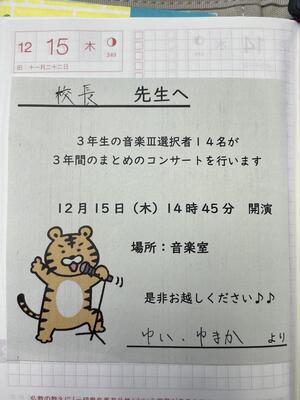 12 15 木
349
旧:十一月二十二日
校長 先生へ
3年生の音楽Ⅲ選択者14名が
3年間のまとめのコンサートを行います
12月15日(木)14時45分 開演
場所:音楽室
是非お越しください♪♪
ゆい・ゆきか より